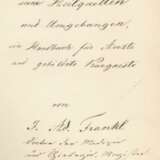 seine Heilquellen
und Umgebungen,
ein Handbuch für Aerzte
und gebildete Kurgaeste
von
J. Ad. Frankl
Doctor der Medizin
und